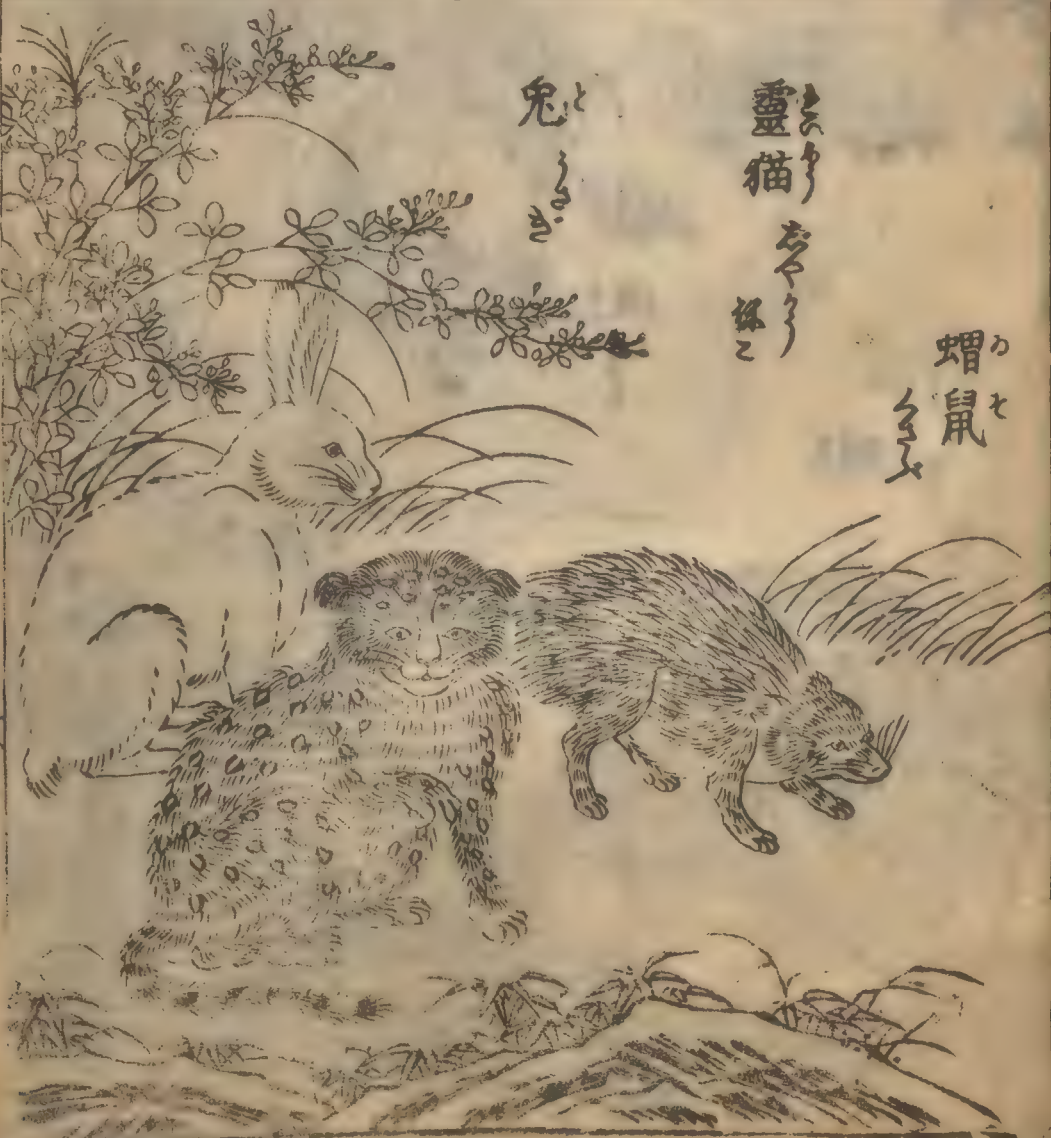 蝟鼠
ゐそ
くさふ
靈猫
れいめう
しやかう
ねこ
兎
と
うさぎ